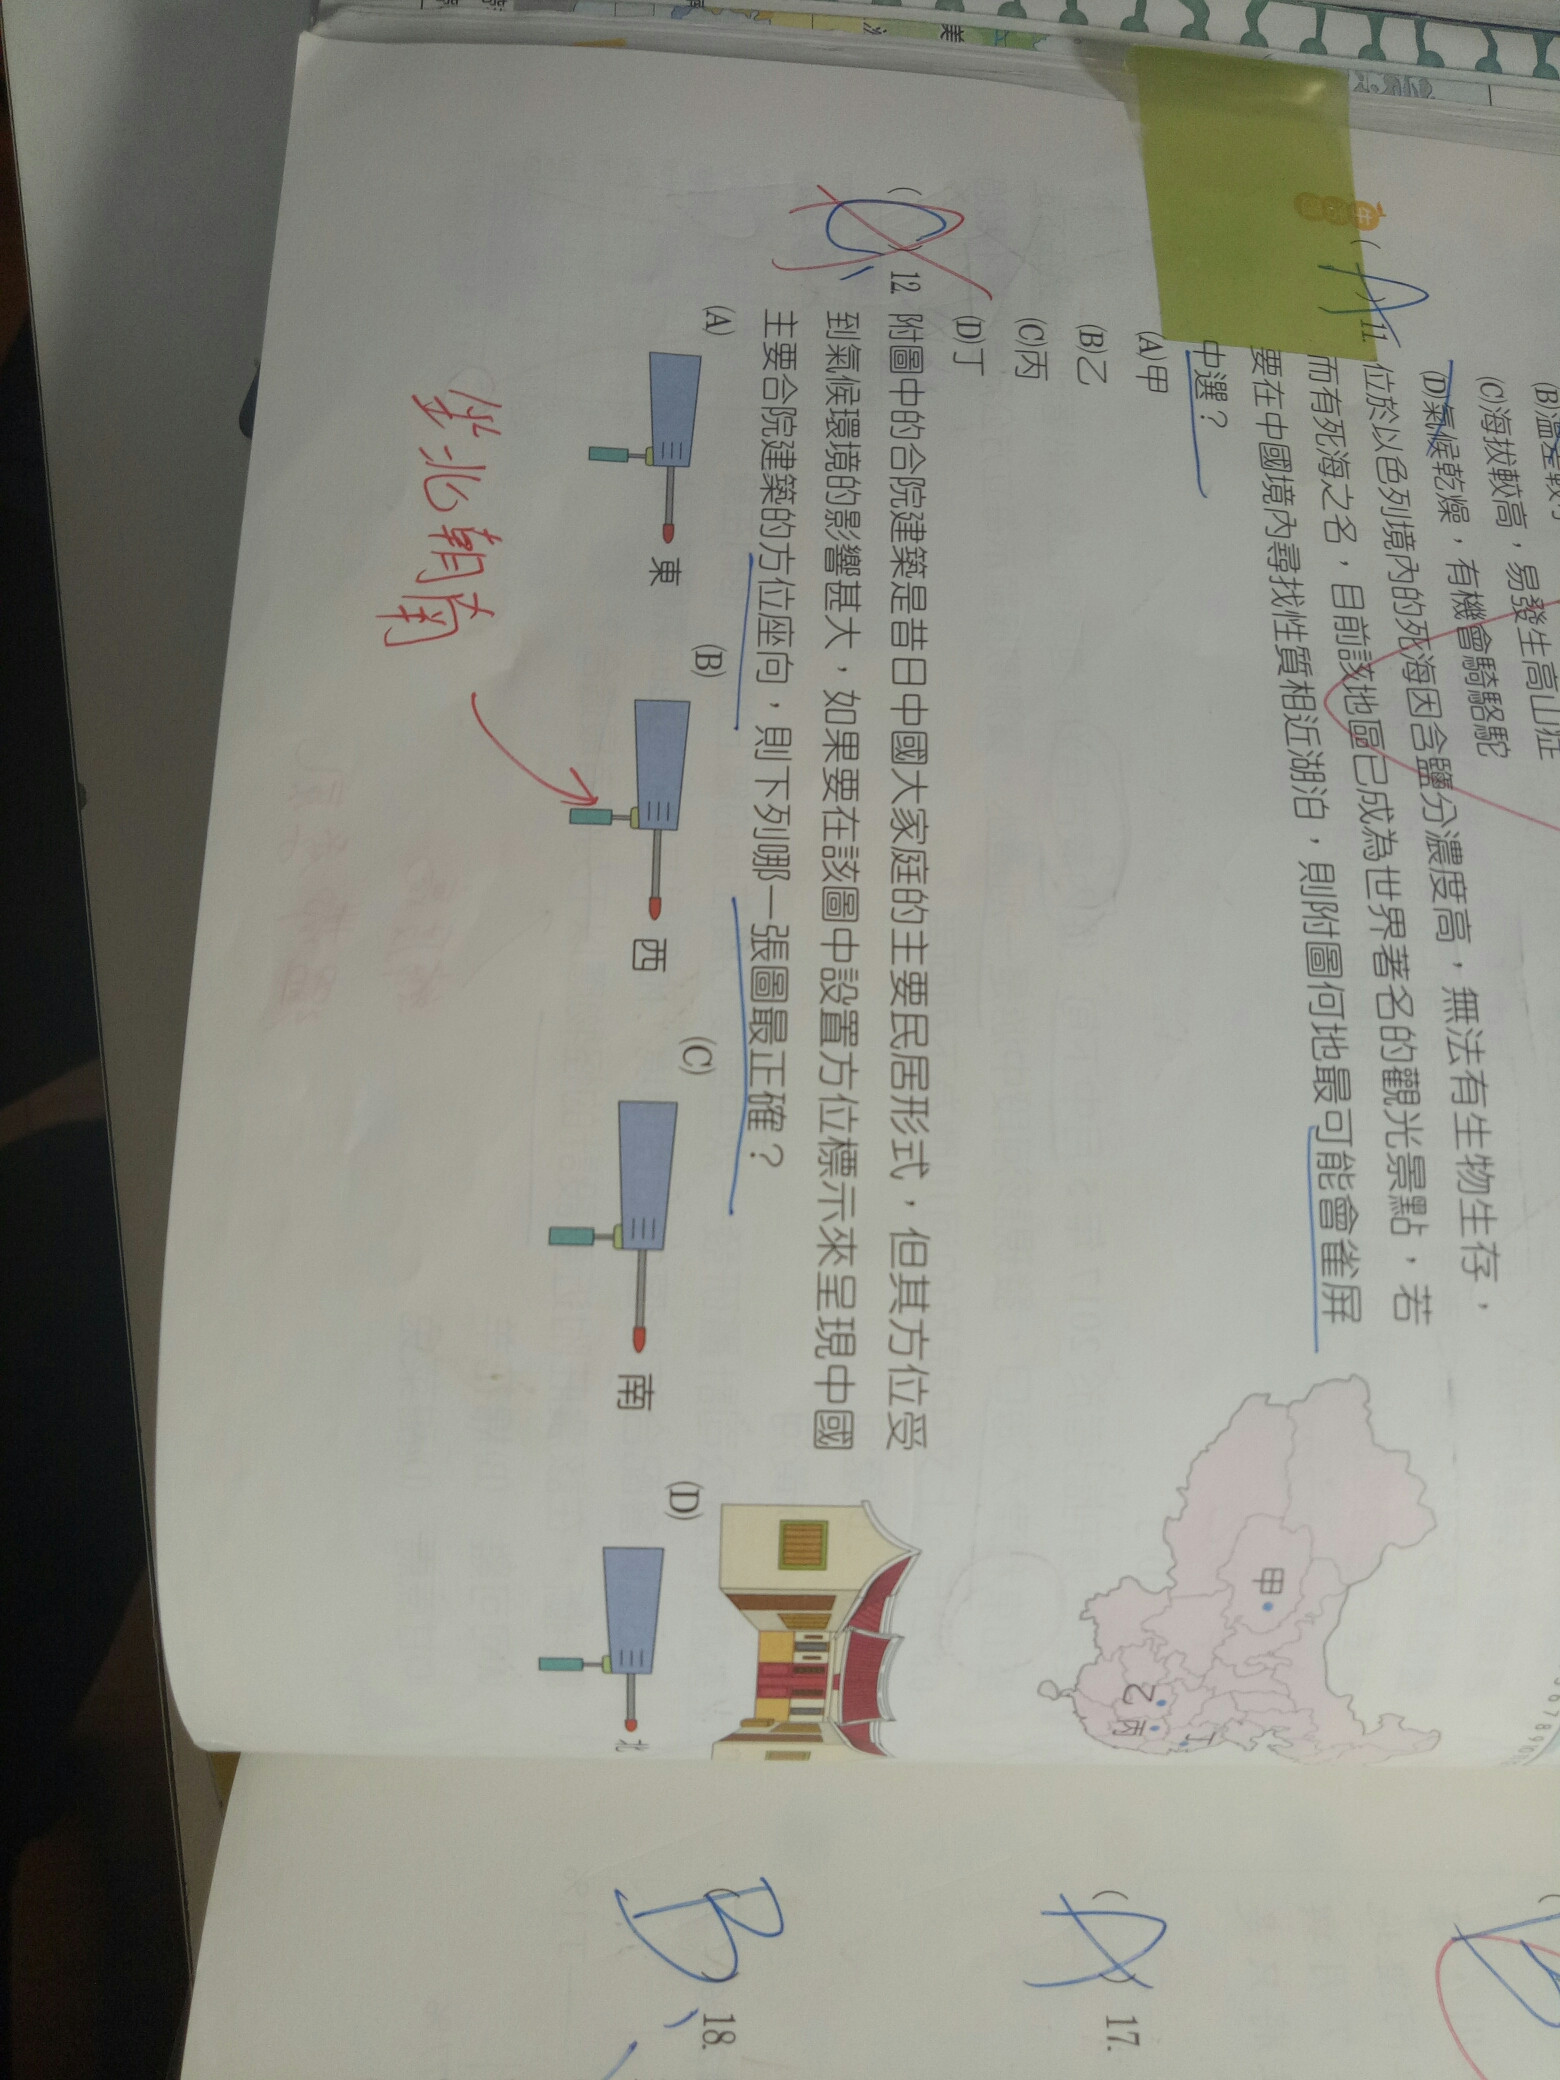 (C)海拔較高，易發生高山症
(D)氣候乾燥，有機會騎駱駝
(A) 11. 位於以色列境內的死海因含鹽分濃度高，無法有生物生存，
而有死海之名，目前該地區已成為世界著名的觀光景點，若
要在中國境內尋找性質相近湖泊，則附圖何地最可能會雀屏
中選？
(A)甲
(B)乙
(C)丙
(D)丁
甲
乙
丙
丁
12. 附圖中的合院建築是昔日中國大家庭的主要民居形式，但其方位受
到氣候環境的影響甚大，如果要在該圖中設置方位標示來呈現中國
主要合院建築的方位座向，則下列哪一張圖最正確？
(A)
東
(B)
西
(C)
南
(D)
北
坐北朝南
(A) 17.
(B) 18.